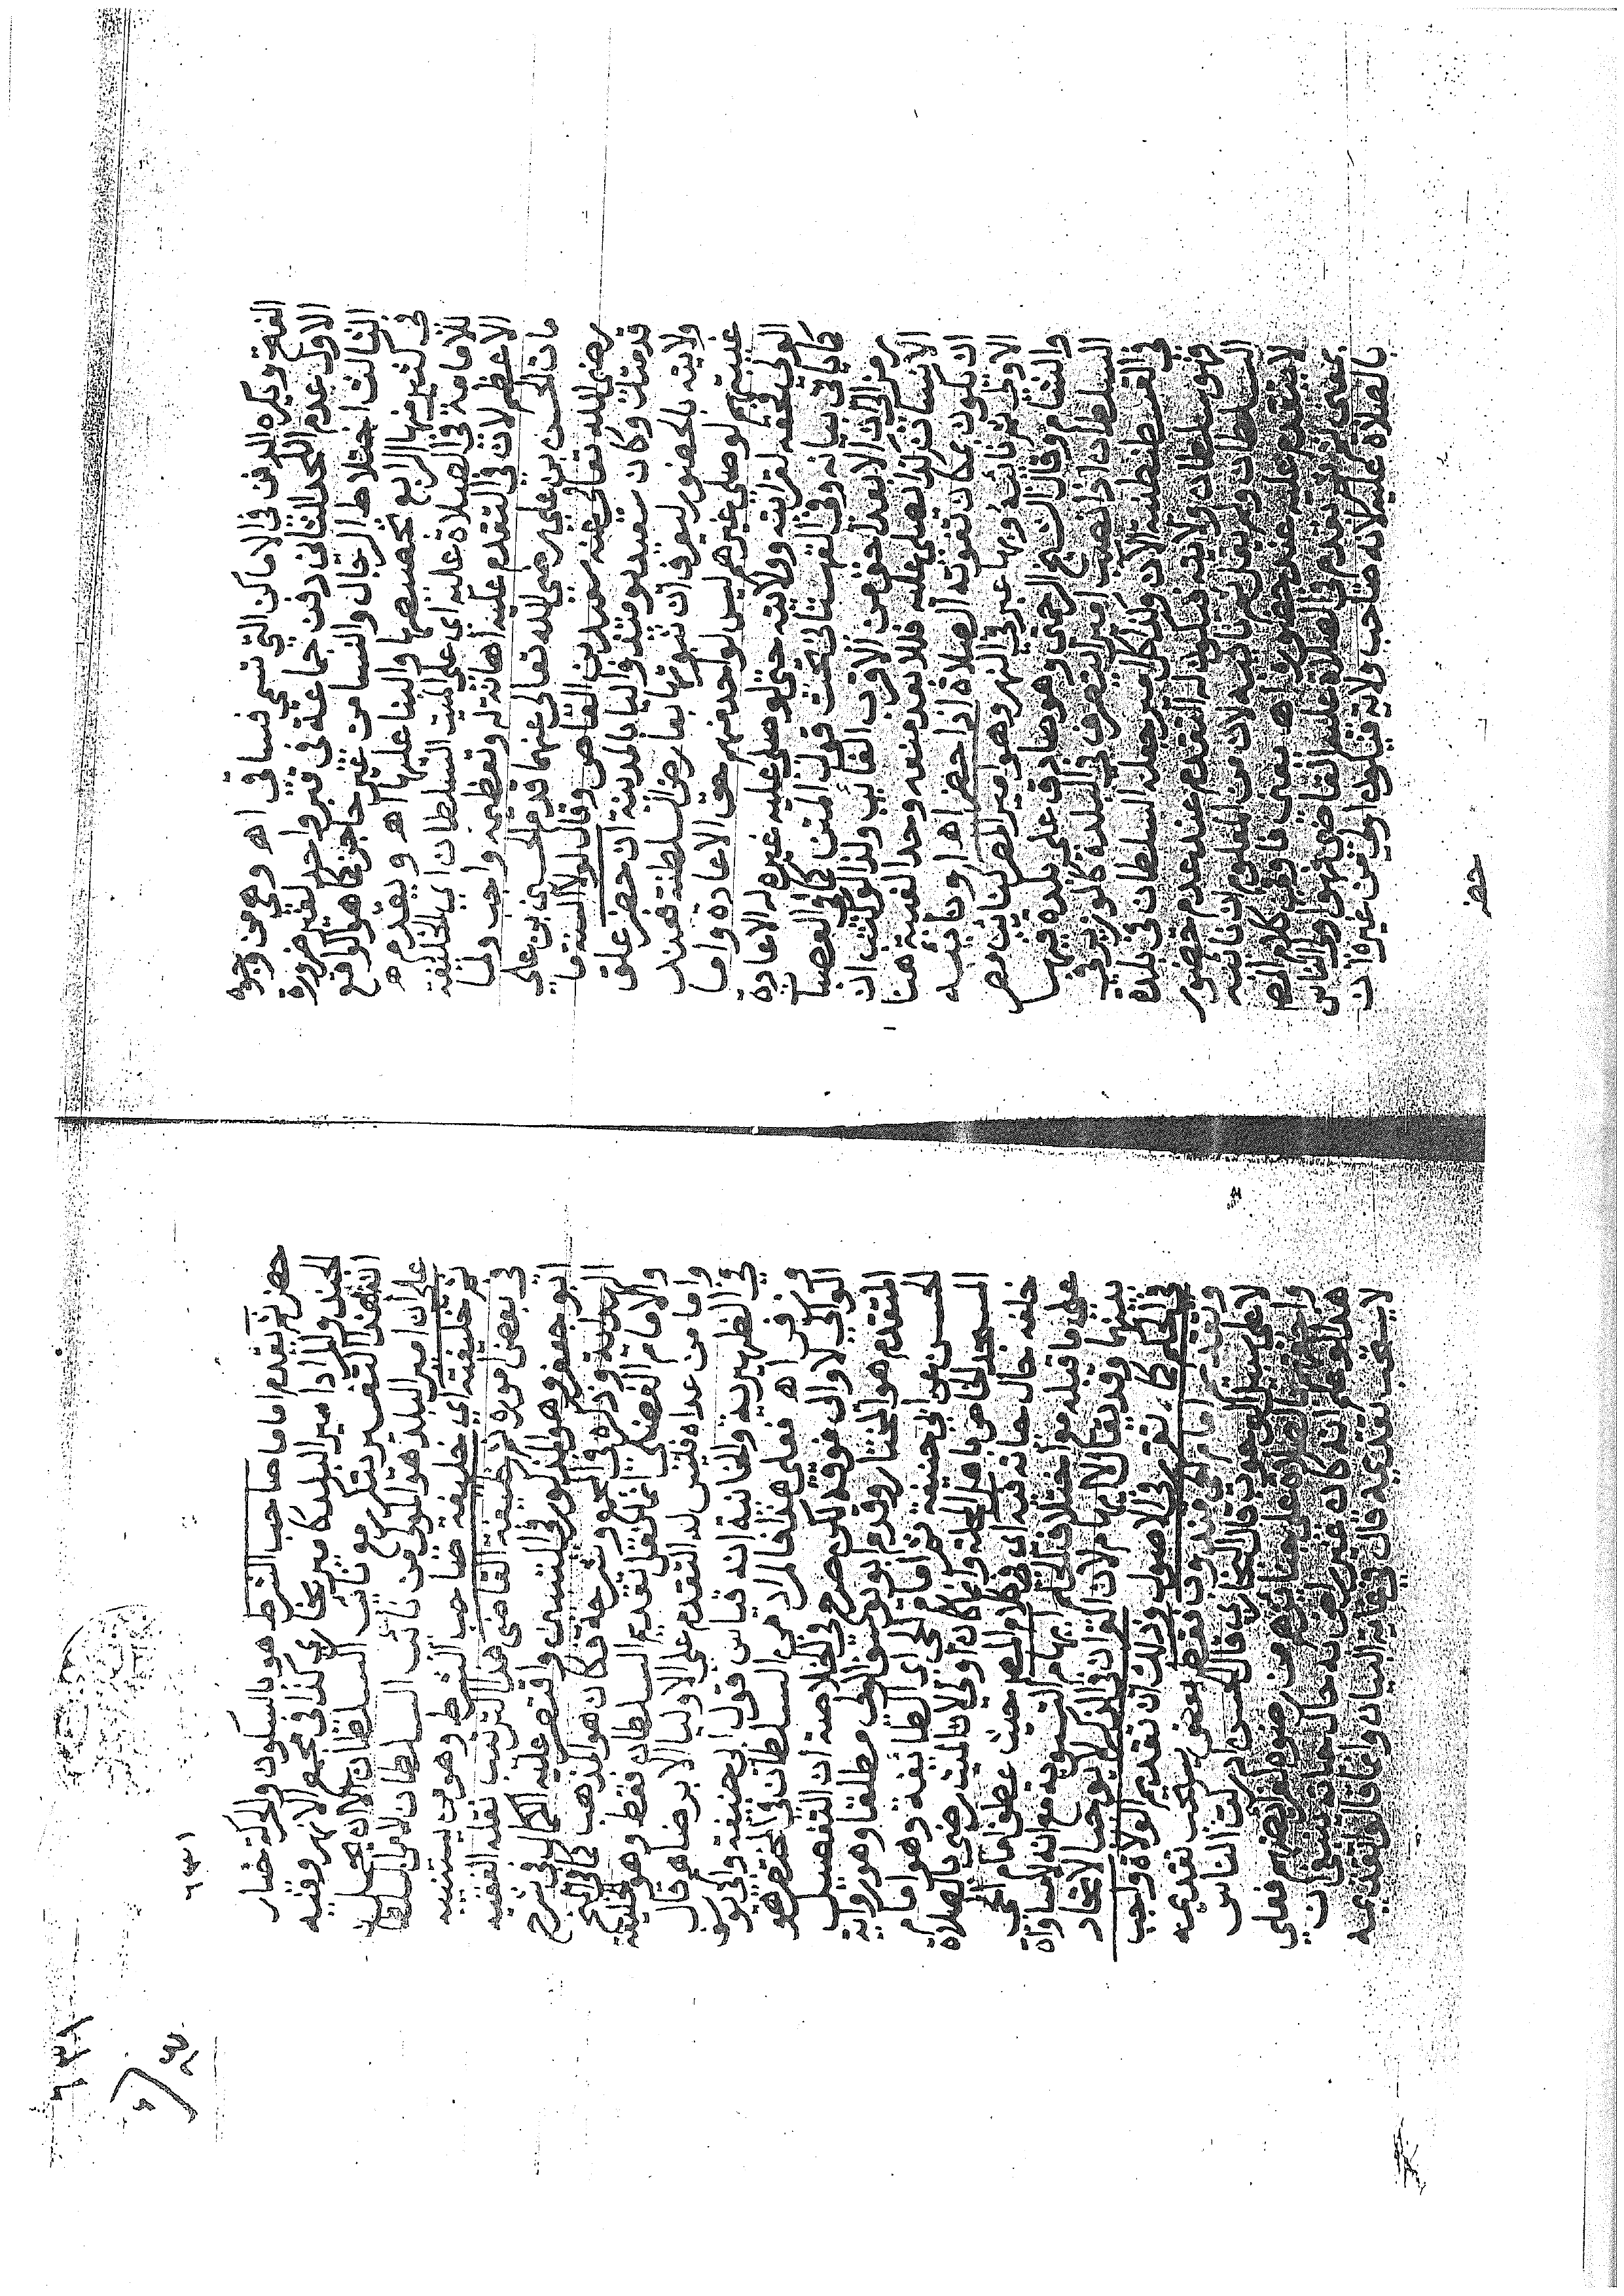 الفتح ويكره الدفن في الاماكن التي تسمي فساقي اهـ وهي من وجوه
الاول عدم اللحد الثاني دفن جماعة في قبر واحد لغير ضرورة
الثالث اختلاط الرجال والنسا من غير حاجز كما هو الواقع
في كثير منها الرابع تجصيصها والبناء عليها اهـ ويقدم هـ
للامامة في الصلاة عليه اي على الميت السلطان اي الخليفة
الاعظم لان في التقدم عليه اهانة له وتعظيمه واجب ولما
مات الحسن بن علي رضي الله تعالى عنهما قدم الحسين بن علي
رضي الله تعالى عنه سعيد بن العاص وقال لولا السنة ما
قدمتك وكان سعيد يومئذ واليا بالمدينة ان حضر علق
ولايته بالحضور ليعرف ان ثبوتها بعارض السلطنة فعند
غيبتهم لو صلى غيرهم ليس لواحد منهم حق الاعادة واما
الولي فحقه لقرابته وولايته حتى لو صلى عليه غيره له الاعادة
كما ياتي بيانه وفي القهستاني تحت قول المتن كما في العصبات
رمز الى ان الابعد احق من الاقرب الغائب ولذا لو كتب ان
الانسان كذا يصلي عليه فللابعد منعه وحد الغيبة هنا
ان يكون بمكان تفوته الصلاة اذا حضر اهـ او نائبه
الاولى ثم نائبه وبها عبر في النهر وهو امير المصر كنائب مصر
والشام وقال الشيخ الرحمتي وهو صادق على بلدة فيها
السلطان اذا نصب امير التصرف في البلدة كالوزير في
في القسطنطينية الان وكذا كل امير جعله السلطان في بلدة
فهو سلطان ولايته فيكون له التقدم عند عدم حضور
السلطان ولم يقل ثم نائبه لان من المعلوم ان نائبه
لا يتقدم عليه عند حضوره اهـ فمعنى ما وقع كلام المص
يعني ثم يتقدم في الصلاة عليه القاضي فهو ولي الناس
بالصلاة عليه لانه صاحب ولاية فيكون اولى من غيره ان
حضر
حضر ثم يقدم اماما صاحب الشرط هو بالسكون والحركة خيار
الجند والمراد امير البلد كامير بخاري كذا في مجمع الانهر وفيه
ان هذا التفسير يتكرر مع نائب السلطان الا ان يحمل
على ان امير البلد هو المولى من نائب السلطان لا من السلطان
ثم خليفته اي خليفة صاحب الشرط وهو من يستنيبه
في بعض اموره ثم خليفة القاضي هذا الترتيب نقله الفقيه
ابو جعفر وهو المذكور في المتبني واقتصر عليه الكمال في شرح
الهداية وذكره في البحر وشرحه فكان هو المذهب كما في البحر
والامام الفضلي انما نقل تقديم السلطان فقط وهو الخليفة
واما من عداه فليس له التقدم على الاوليا الا برضاهم قال
في الظهيرية والخانية انه قياس قول ابي حنيفة وابي يوسف
وزفر اهـ فعلى هذا فالمراد من السلطان في المختصر هو
الوالي لا والي فوقه لكن صرح في الخلاصة ان التفصيل
المتقدم هو المختار وقدم ابو يوسف الولي مطلقا وهو رواية
الحسن عن ابي حنيفة ثم امام الحي اي الطائفة وهو امام
المسجد الخاص باهل المحلة وانما كان اولى لان الميت رضي بالصلاة
خلفه حال حياته فيه اي في كلام المص حيث عطف امام الحي
على ما قبله مع اختلاف الحكم ايهام التسوية مع انه لا مساواة
بينهما وقد يقال لا ايهام لان القران في الذكر لا يوجب الاتحاد
في الحكم كما تقرر في الاصول وذلك ان تقديم الولاة واجب
وتقديم امام الحي مندوب فقط يعني يستحب تقديمه
لا على سبيل الوجوب قال البخاري قال الحسن ادركت الناس
واحقهم بالصلاة على جنائزهم من رضوه لفرائضهم فعلى
هذا لو علم انه كان غير راض به حال حياته ينبغي ان
لا يستحب تقديمه قال في غاية البيان وانما قالوا تقديمه